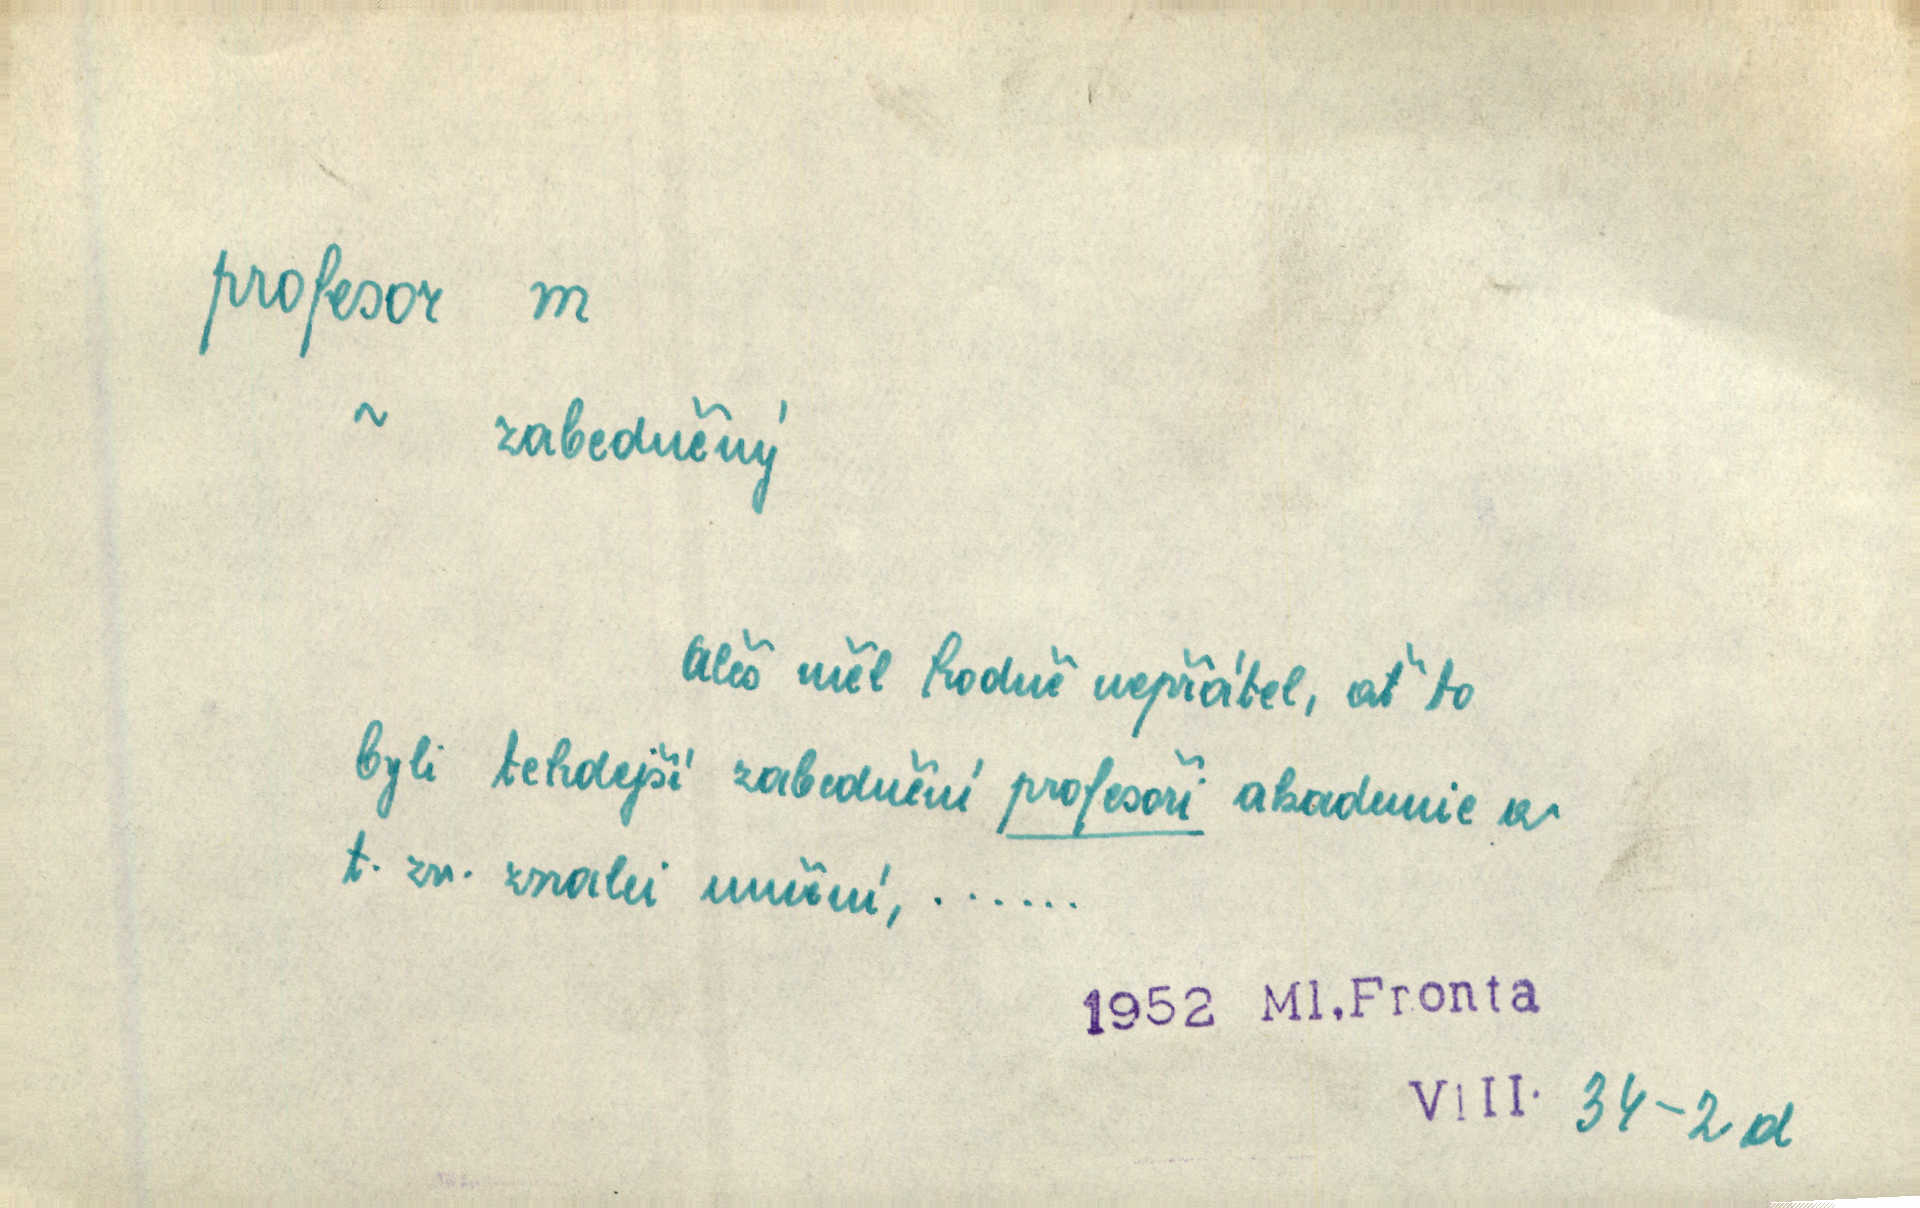 profesor m
~ zabedněný
Aleš měl hodně nepřátel, ať to
byli tehdejší zabednění profesoři akademie a
t. zn. znalci umění, ......
1952 Ml.Fronta
VIII. 34-2d